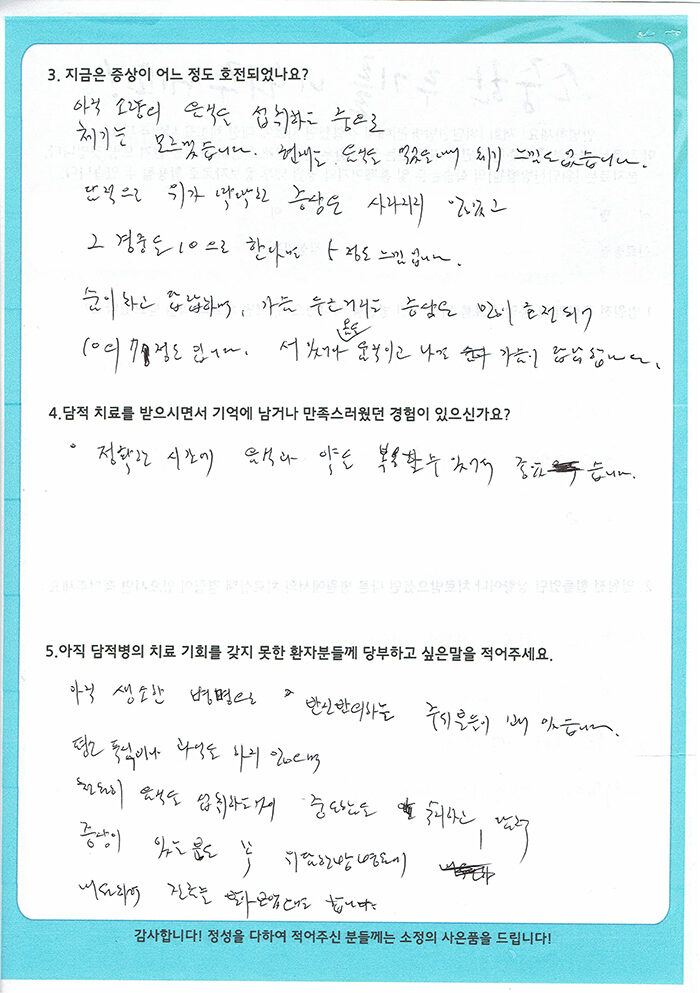 3. 지금은 증상이 어느 정도 호전되었나요?
아직 소량의 음식을 섭취하는 중으로
체기는 모르겠습니다. 현재는 음식을 먹었을때 체기 느낌은 없습니다.
담적으로 위가 딱딱한 증상은 사라지지 않았고
그 경중을 10으로 한다면 5 정도 느낌입니다.
숨이차고 답답하며, 가슴 두근거리는 증상은 많이 호전되가
10에 7정도 됩니다. 서 있거나 몸을 움직이고 나면 가슴이 답답합니다.
4.담적 치료를 받으시면서 기억에 남거나 만족스러웠던 경험이 있으신가요?
정확한 시간에 음식과 약을 복용할수 있어서 좋았습니다.
5.아직 담적병의 치료 기회를 갖지 못한 환자분들께 당부하고 싶은말을 적어주세요.
아직 생소한 병명으로 반신반의하는 주위분들이 꽤 있습니다.
평소 폭식이나 과식을 하지 않으며
천천히 음식을 섭취하는것이 중요함을
증상이 있는분은 꼭
내원하여 진료를 합니다.
감사합니다! 정성을 다하여 적어주신 분들께는 소정의 사은품을 드립니다!